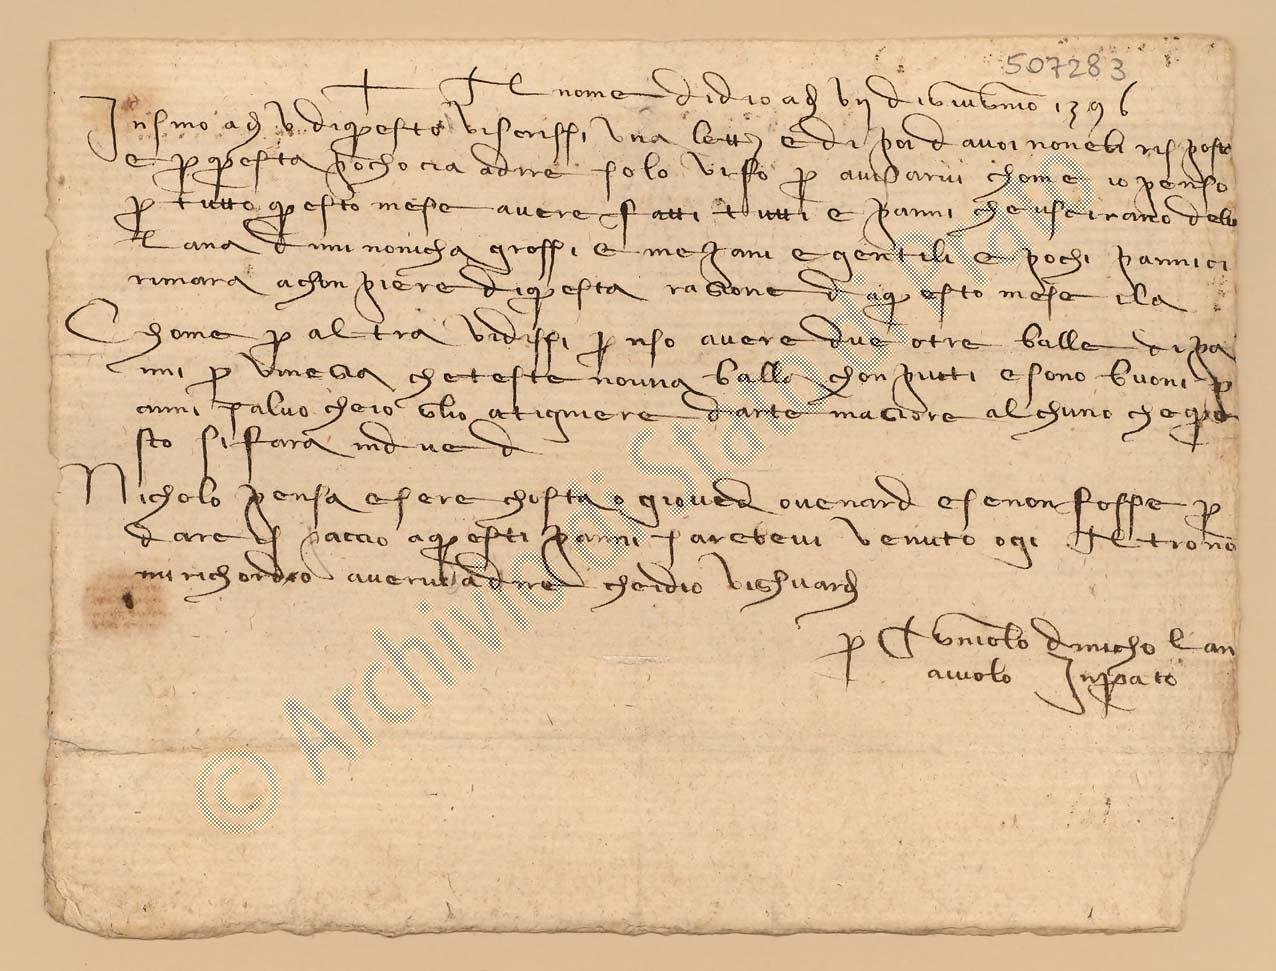 507283
+ Al nome di dio a dì vij di giungnio 1396
Insino a dì v di questo vi scrissi una lett e di poi da voi non ebi risposto
e p questa pocho cia a dire solo vi fo p avisarvi chome io penso
p tutto questo mese avere fatti tutti e panni che usciranno dela
lana di minoricha grossi e mezani e gentili e pochi panni ci
rimara a chonpiere di questa ragione da questo mese i la
Chome p altra vi dissi p nso avere due o tre balle di pa
nni p vinegia che teste non n a balla chon putti e sono buoni p
anni salvo che io vlio atigniere d arte magiore alchuno che que
sto si fara in due d
Nicholo pensa esere chosta o giovedi o venerdi e se non fosse p
dare ispaccio a questi panni sarebevi venuto ogi altro no
mi richordo avervi a dire che idio vi ghuardi
p Angniolo di nicho lan
aiuolo In prato
© Archivio di Stato di Prato